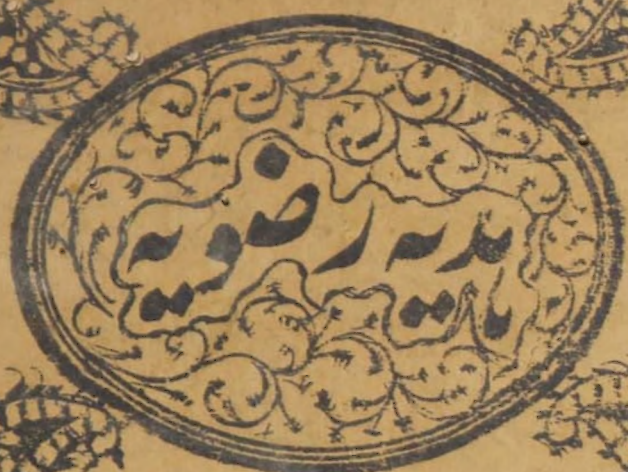 هدیه رضویه